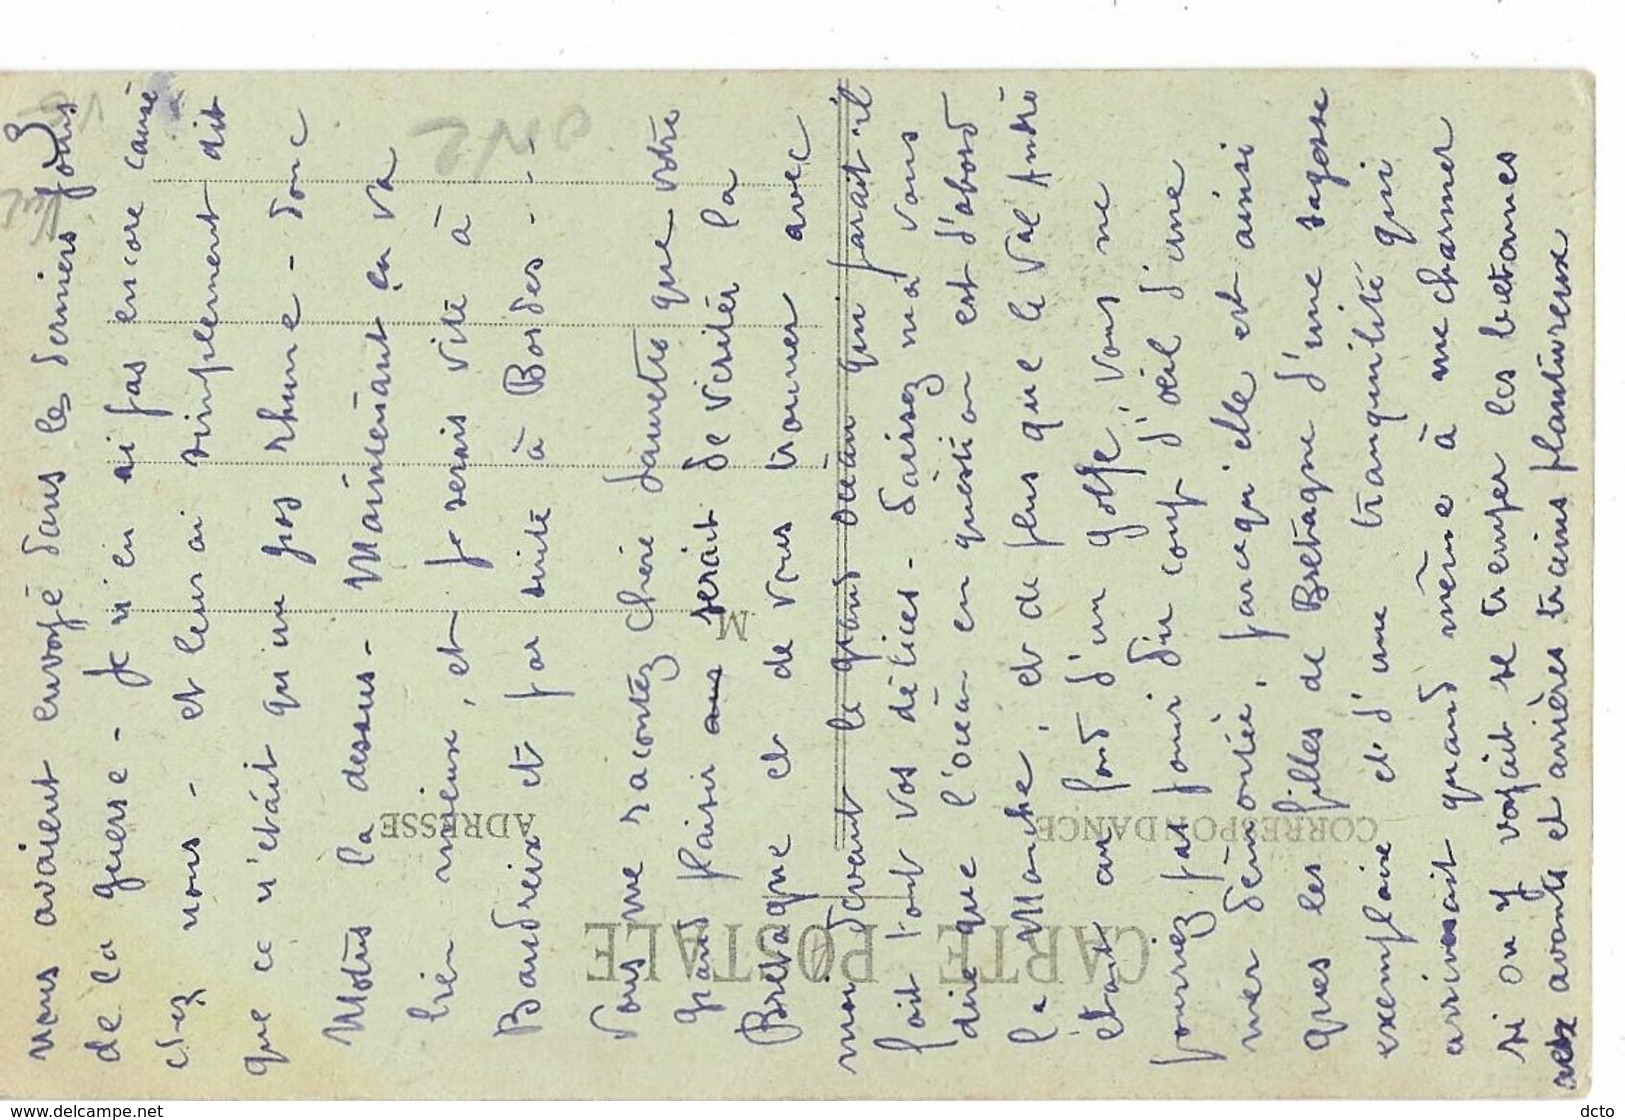 nous avaient envoyé dans les derniers jours
de la guerre - Je n'en ai pas encore causé
chez nous - et leur ai simplement dit
que ce n'était qu'un gros rhume - donc
Motus la dessus - Maintenant ça va
bien mieux, et je serais vite à
Baudreix et par suite à Bordes - - -
Vous me racontez chère que votre
grand plaisir serait de visiter la
Bretagne et de vous trouver avec
moi devant le grand océan qui parait il
fait tout vos délices - Laissez moi vous
dire que l'océan en question est d'abord
la Manche, et de plus que le Val André
étant au fond d'un golfe, vous ne
pourriez pas jouir du coup d'œil d'une
mer démontée, parcequ'elle est ainsi
que les filles de Bretagne d'une sagesse
exemplaire et d'une tranquilité qui
arriverait quand même à me charmer
si on y voyait se tremper les bretonnes
aux avants et arrières trains plantureux
CARTE POSTALE
CORRESPONDANCE
ADRESSE
M
www.delcampe.net
dcto